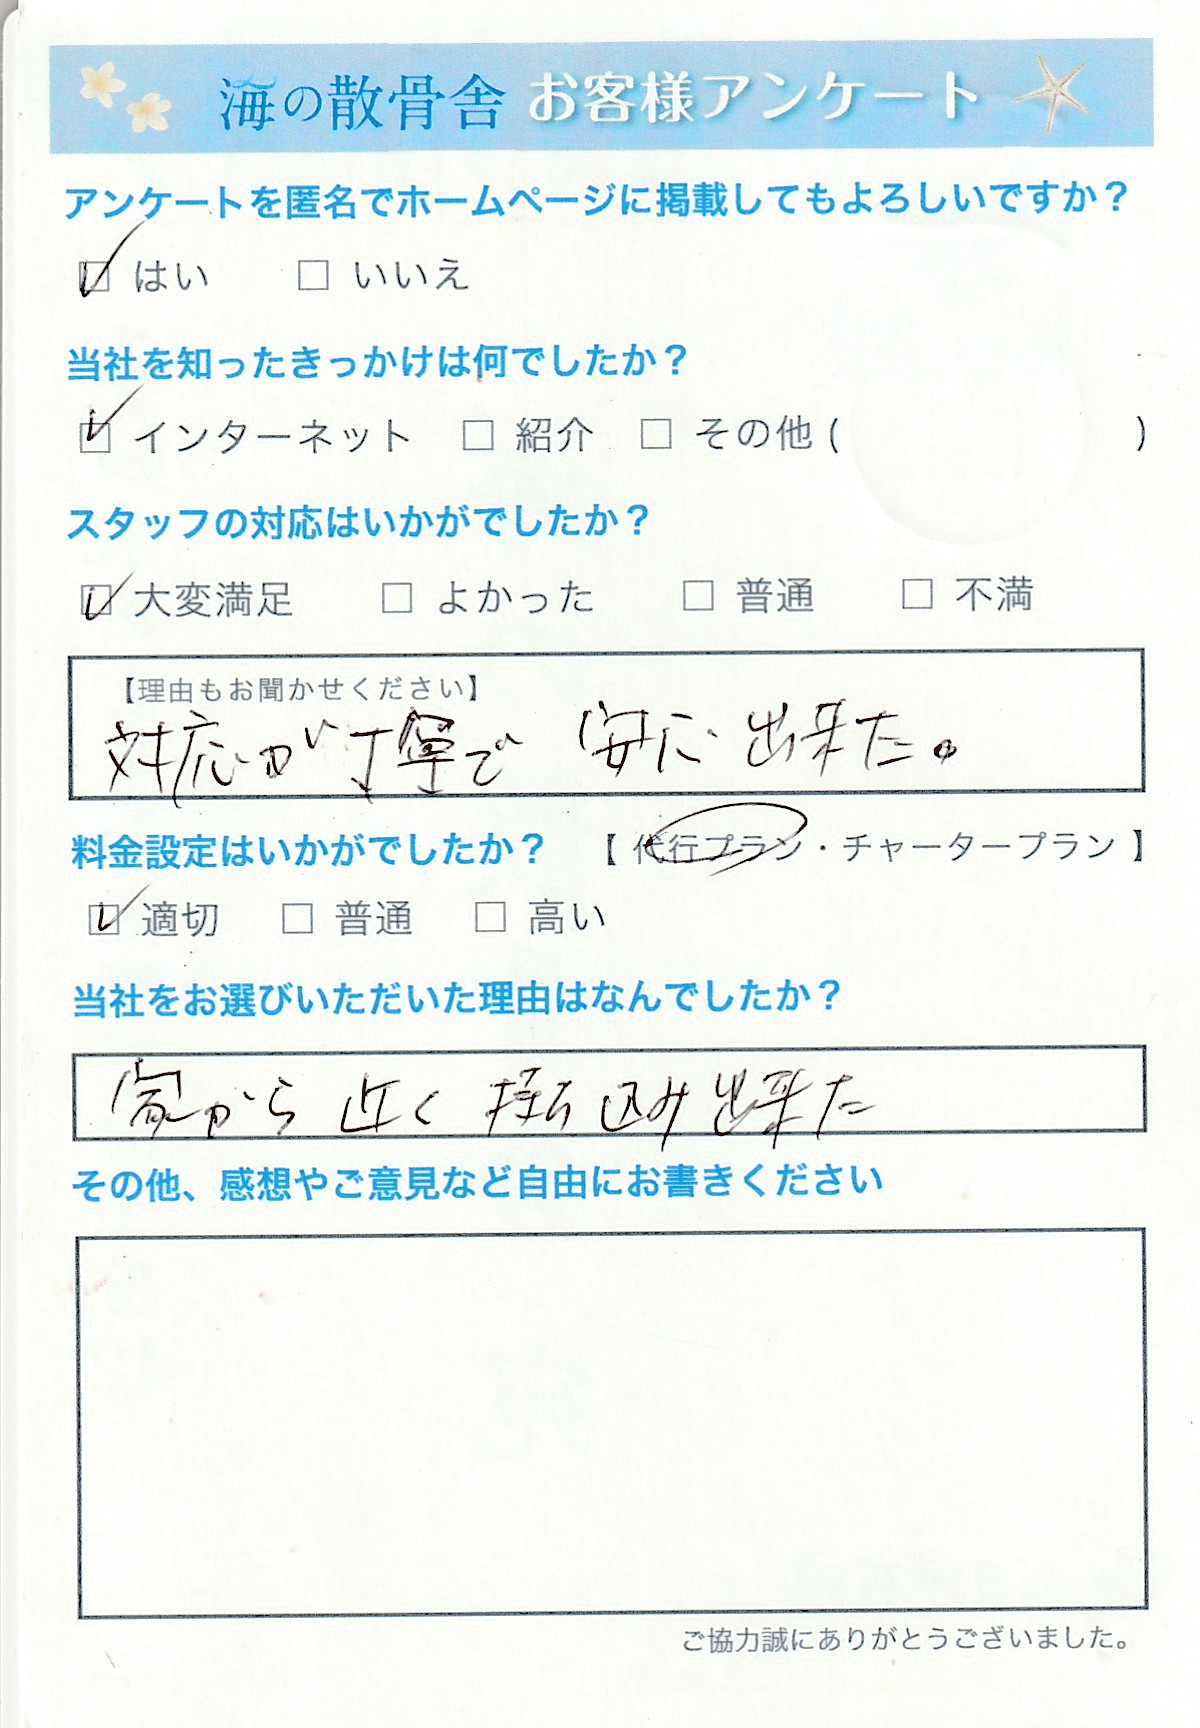 海の散骨舎 お客様アンケート
アンケートを匿名でホームページに掲載してもよろしいですか？
☑ はい □ いいえ
当社を知ったきっかけは何でしたか？
☑ インターネット □ 紹介 □ その他 ( )
スタッフの対応はいかがでしたか？
☑ 大変満足 □ よかった □ 普通 □ 不満
【理由もお聞かせください】
対応が丁寧で 安心出来た。
料金設定はいかがでしたか？ 【 代行プラン・チャータープラン 】
☑ 適切 □ 普通 □ 高い
当社をお選びいただいた理由はなんでしたか？
家から近く 持ち込み出来た
その他、感想やご意見など自由にお書きください
ご協力誠にありがとうございました。